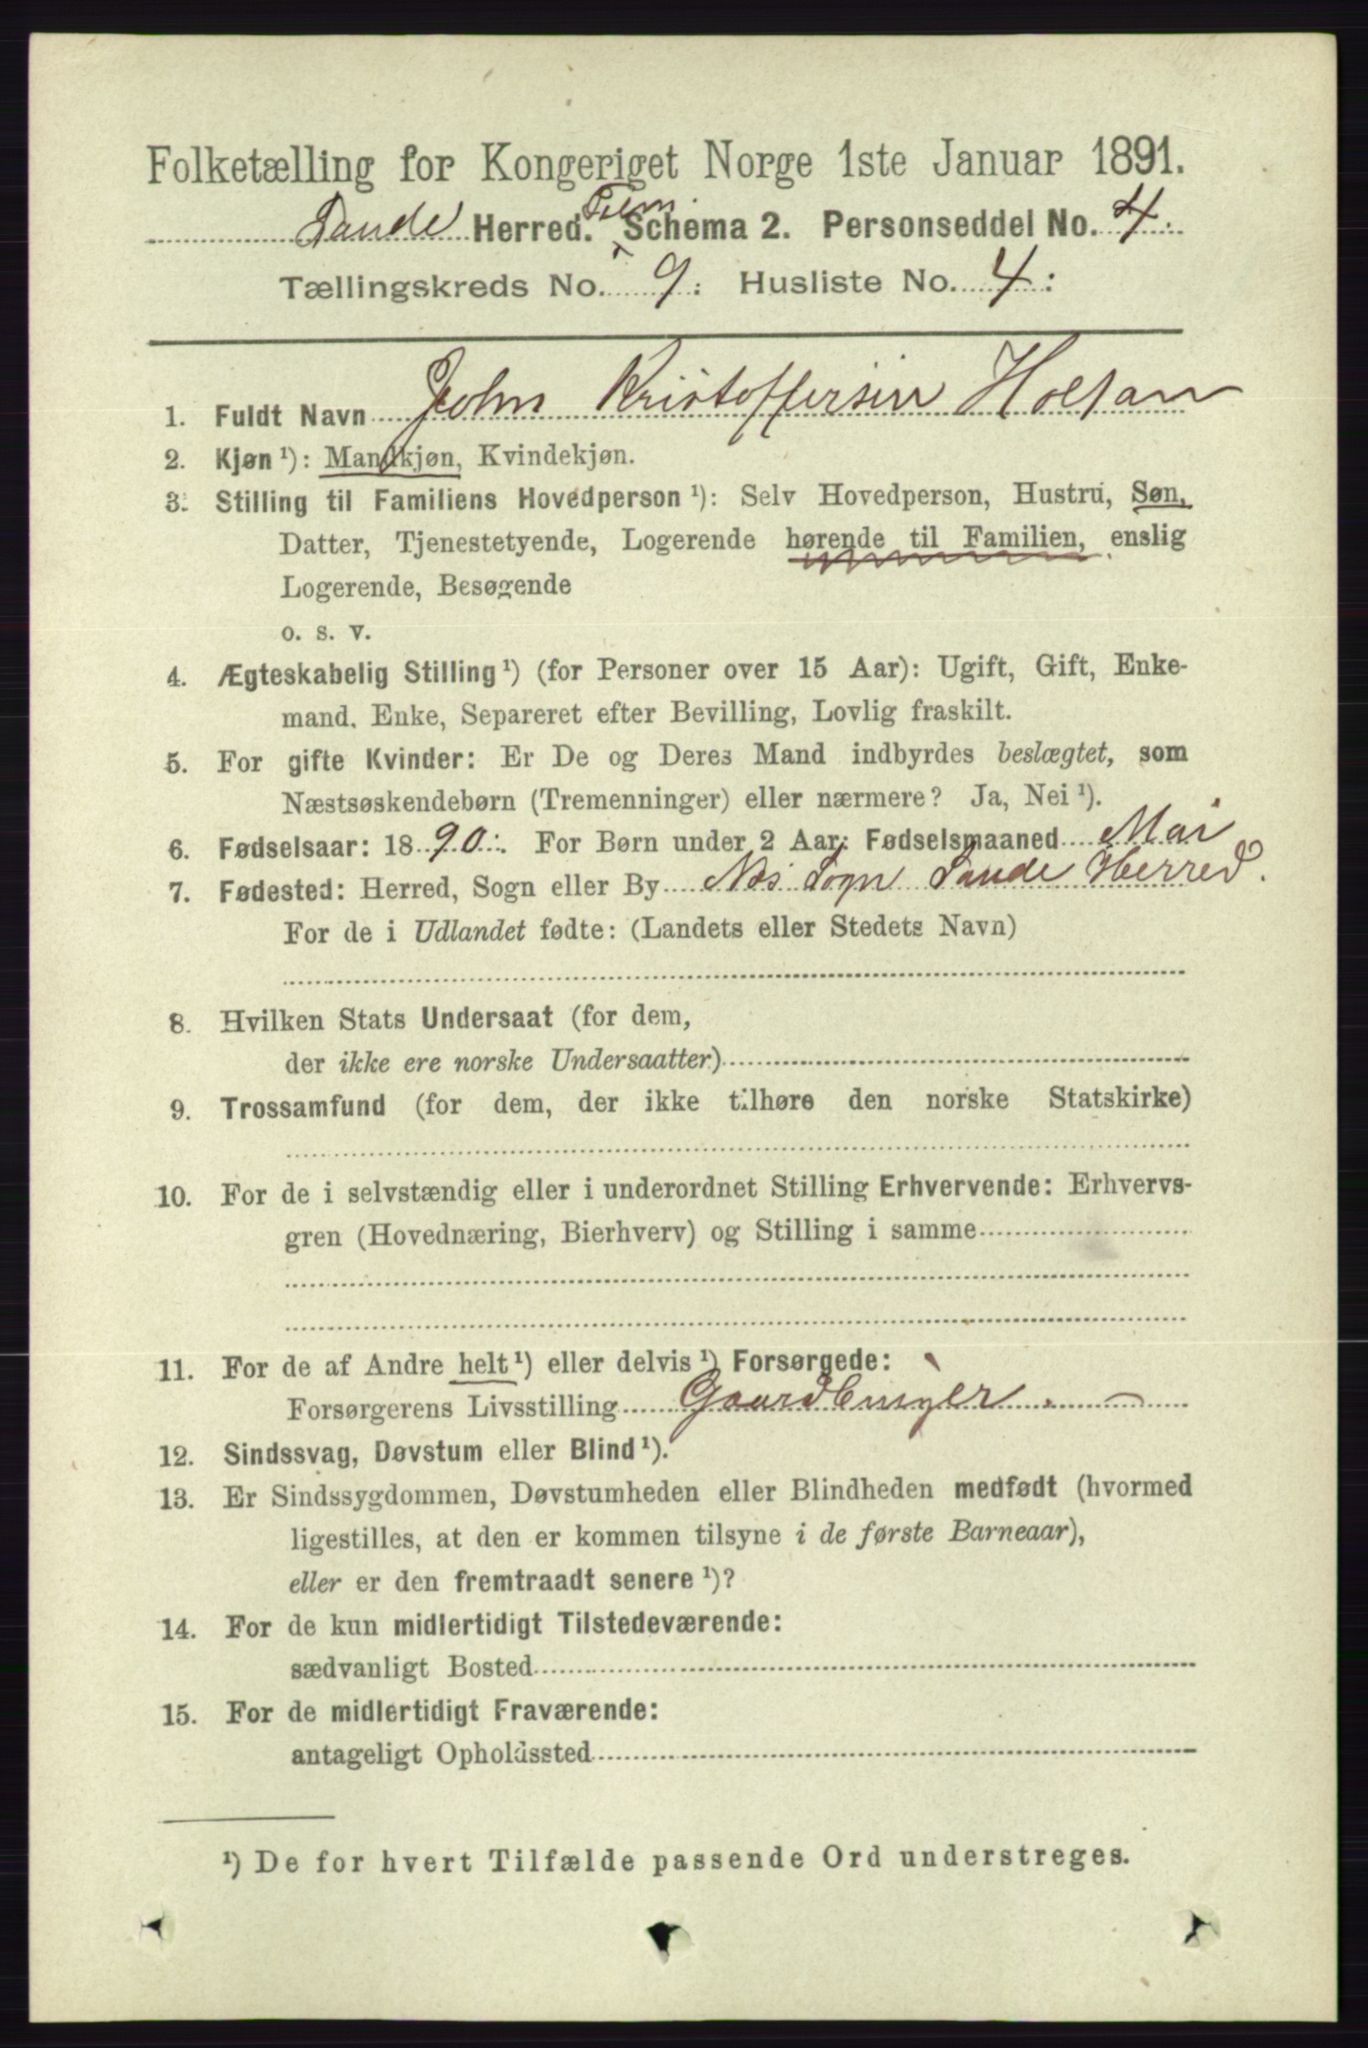 Folketælling for Kongeriget Norge 1ste Januar 1891.
Sande Herred. Schema 2. Personseddel No. 4.
Tællingskreds No. 9. Husliste No. 4:
1. Fuldt Navn John Kristoffersen Holtan
2. Kjøn ¹): Mandkjøn, Kvindekjøn.
3. Stilling til Familiens Hovedperson ¹): Selv Hovedperson, Hustru, Søn,
Datter, Tjenestetyende, Logerende hørende til Familien, enslig
Logerende, Besøgende
o. s. v.
4. Ægteskabelig Stilling ¹) (for Personer over 15 Aar): Ugift, Gift, Enke-
mand, Enke, Separeret efter Bevilling, Lovlig fraskilt.
5. For gifte Kvinder: Er De og Deres Mand indbyrdes beslægtet, som
Næstsøskendebørn (Tremenninger) eller nærmere? Ja, Nei ¹).
6. Fødselsaar: 1890. For Børn under 2 Aar: Fødselsmaaned Mai
7. Fødested: Herred, Sogn eller By Næs Sogn Sande Herred.
For de i Udlandet fødte: (Landets eller Stedets Navn)
8. Hvilken Stats Undersaat (for dem,
der ikke ere norske Undersaatter)
9. Trossamfund (for dem, der ikke tilhøre den norske Statskirke)
10. For de i selvstændig eller i underordnet Stilling Erhvervende: Erhvervs-
gren (Hovednæring, Bierhverv) og Stilling i samme
11. For de af Andre helt ¹) eller delvis ¹) Forsørgede:
Forsørgerens Livsstilling Gaardbruger
12. Sindssvag, Døvstum eller Blind ¹).
13. Er Sindssygdommen, Døvstumheden eller Blindheden medfødt (hvormed
ligestilles, at den er kommen tilsyne i de første Barneaar),
eller er den fremtraadt senere ¹)?
14. For de kun midlertidigt Tilstedeværende:
sædvanligt Bosted
15. For de midlertidigt Fraværende:
antageligt Opholdssted
¹) De for hvert Tilfælde passende Ord understreges.